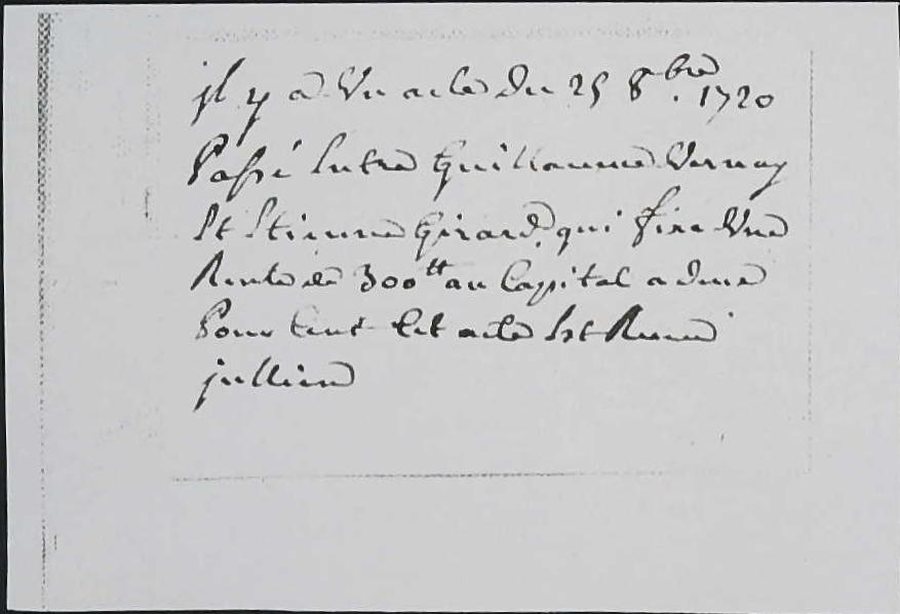 jl y a Vn acte du 25 8.bre 1720
Passé Entre Guillaume Vernay
Et Etienne Girard, qui fixe Vne
Rente de 300tt au Capital a
Pour Cent Cet acte Est Recu
jullien